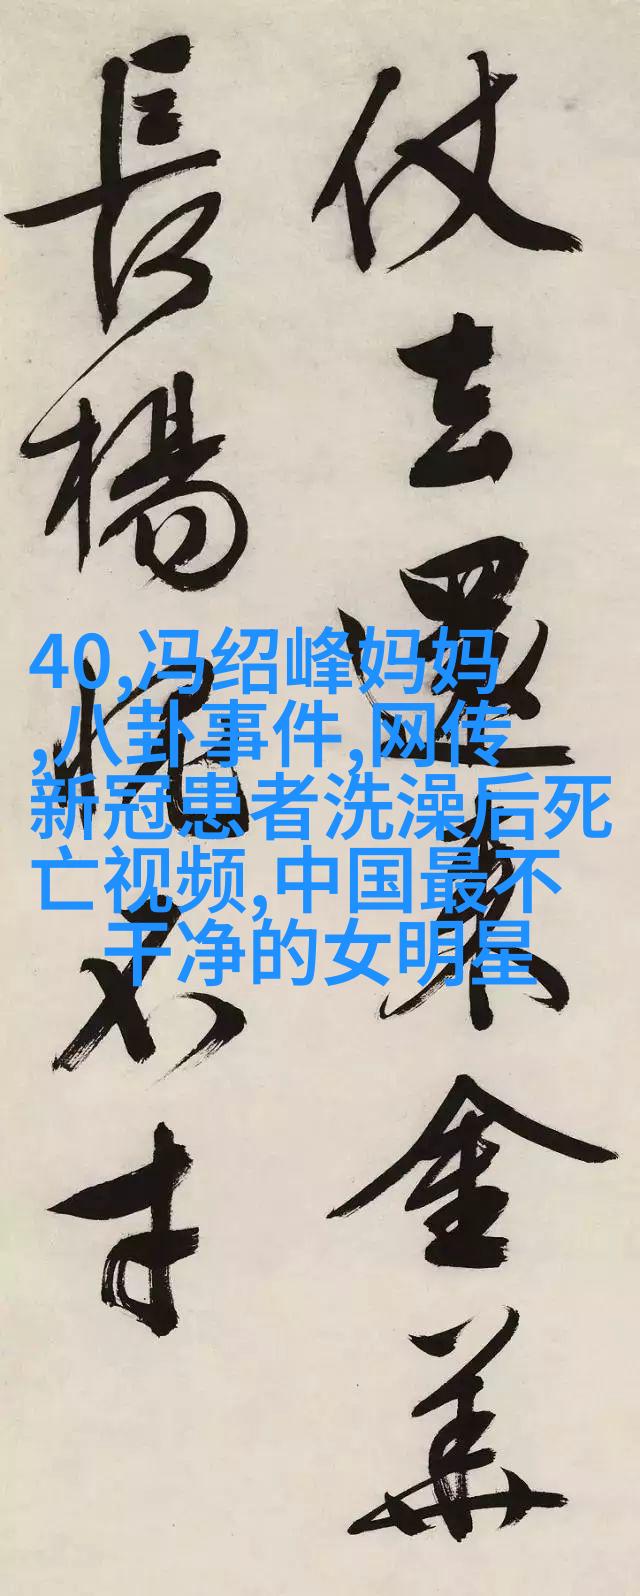 仗去還来金華
長楊不才
40,冯绍峰妈妈
,八卦事件,网传
新冠患者洗澡后死
亡视频,中国最不
干净的女明星